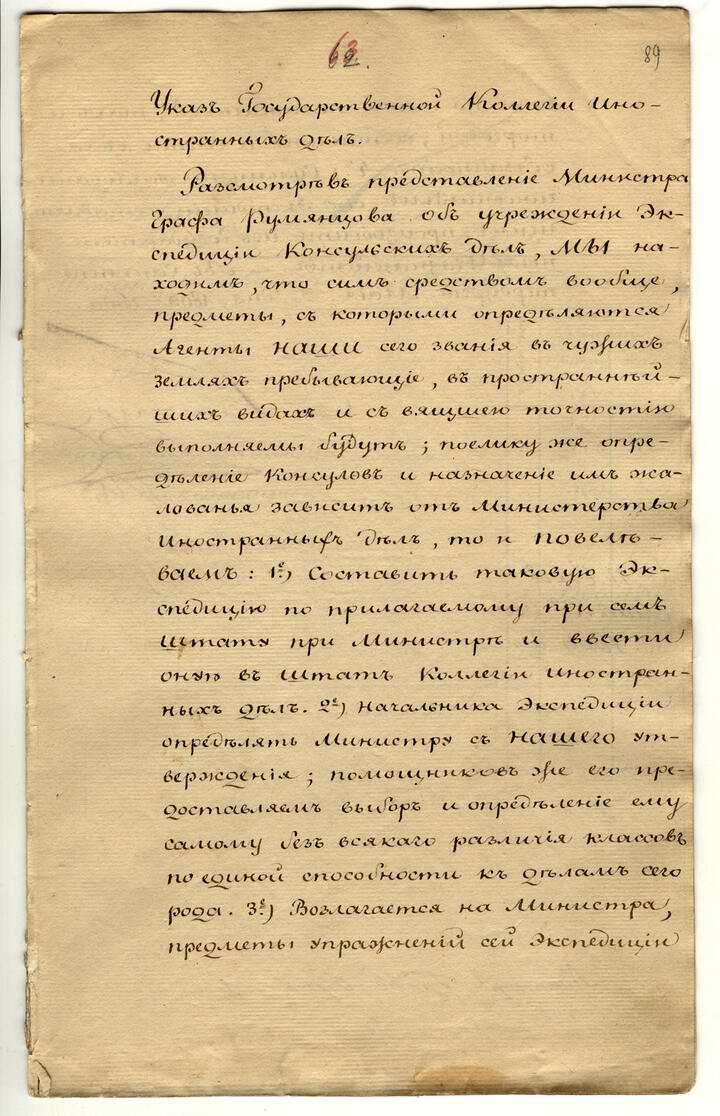 89
Указъ Государственной Коллегіи Ино-
странныхъ дѣлъ.
Разсмотрѣвъ представленіе Министра
Графа Румянцова объ учрежденіи Эк-
спедиціи Консульскихъ дѣлъ, МЫ на-
ходимъ, что симъ средствомъ вообще,
предметы, съ которыми опредѣляются
Агенты НАШИ сего званія въ чужихъ
земляхъ пребывающіе, въ пространнѣй-
шихъ видахъ и съ вящшею точностію
выполняемы будутъ; поелику же опре-
дѣленіе Консуловъ и назначеніе имъ жа-
лованья зависитъ отъ Министерства
Иностранныхъ дѣлъ, то и ПОВЕЛѢ-
ваемъ: 1е) Составить таковую Эк-
спедицію по прилагаемому при семъ
штату при Министрѣ и ввести
оную въ штатъ Коллегіи иностран-
ныхъ дѣлъ. 2е) Начальника Экспедиціи
опредѣлять Министру съ НАШЕГО ут-
вержденія; помощниковъ же его пре-
доставляемъ выборъ и опредѣленіе ему
самому безъ всякаго различія классовъ
по единой способности къ дѣламъ сего
рода. 3е) Возлагается на Министра,
предметы упражненій сей Экспедиціи